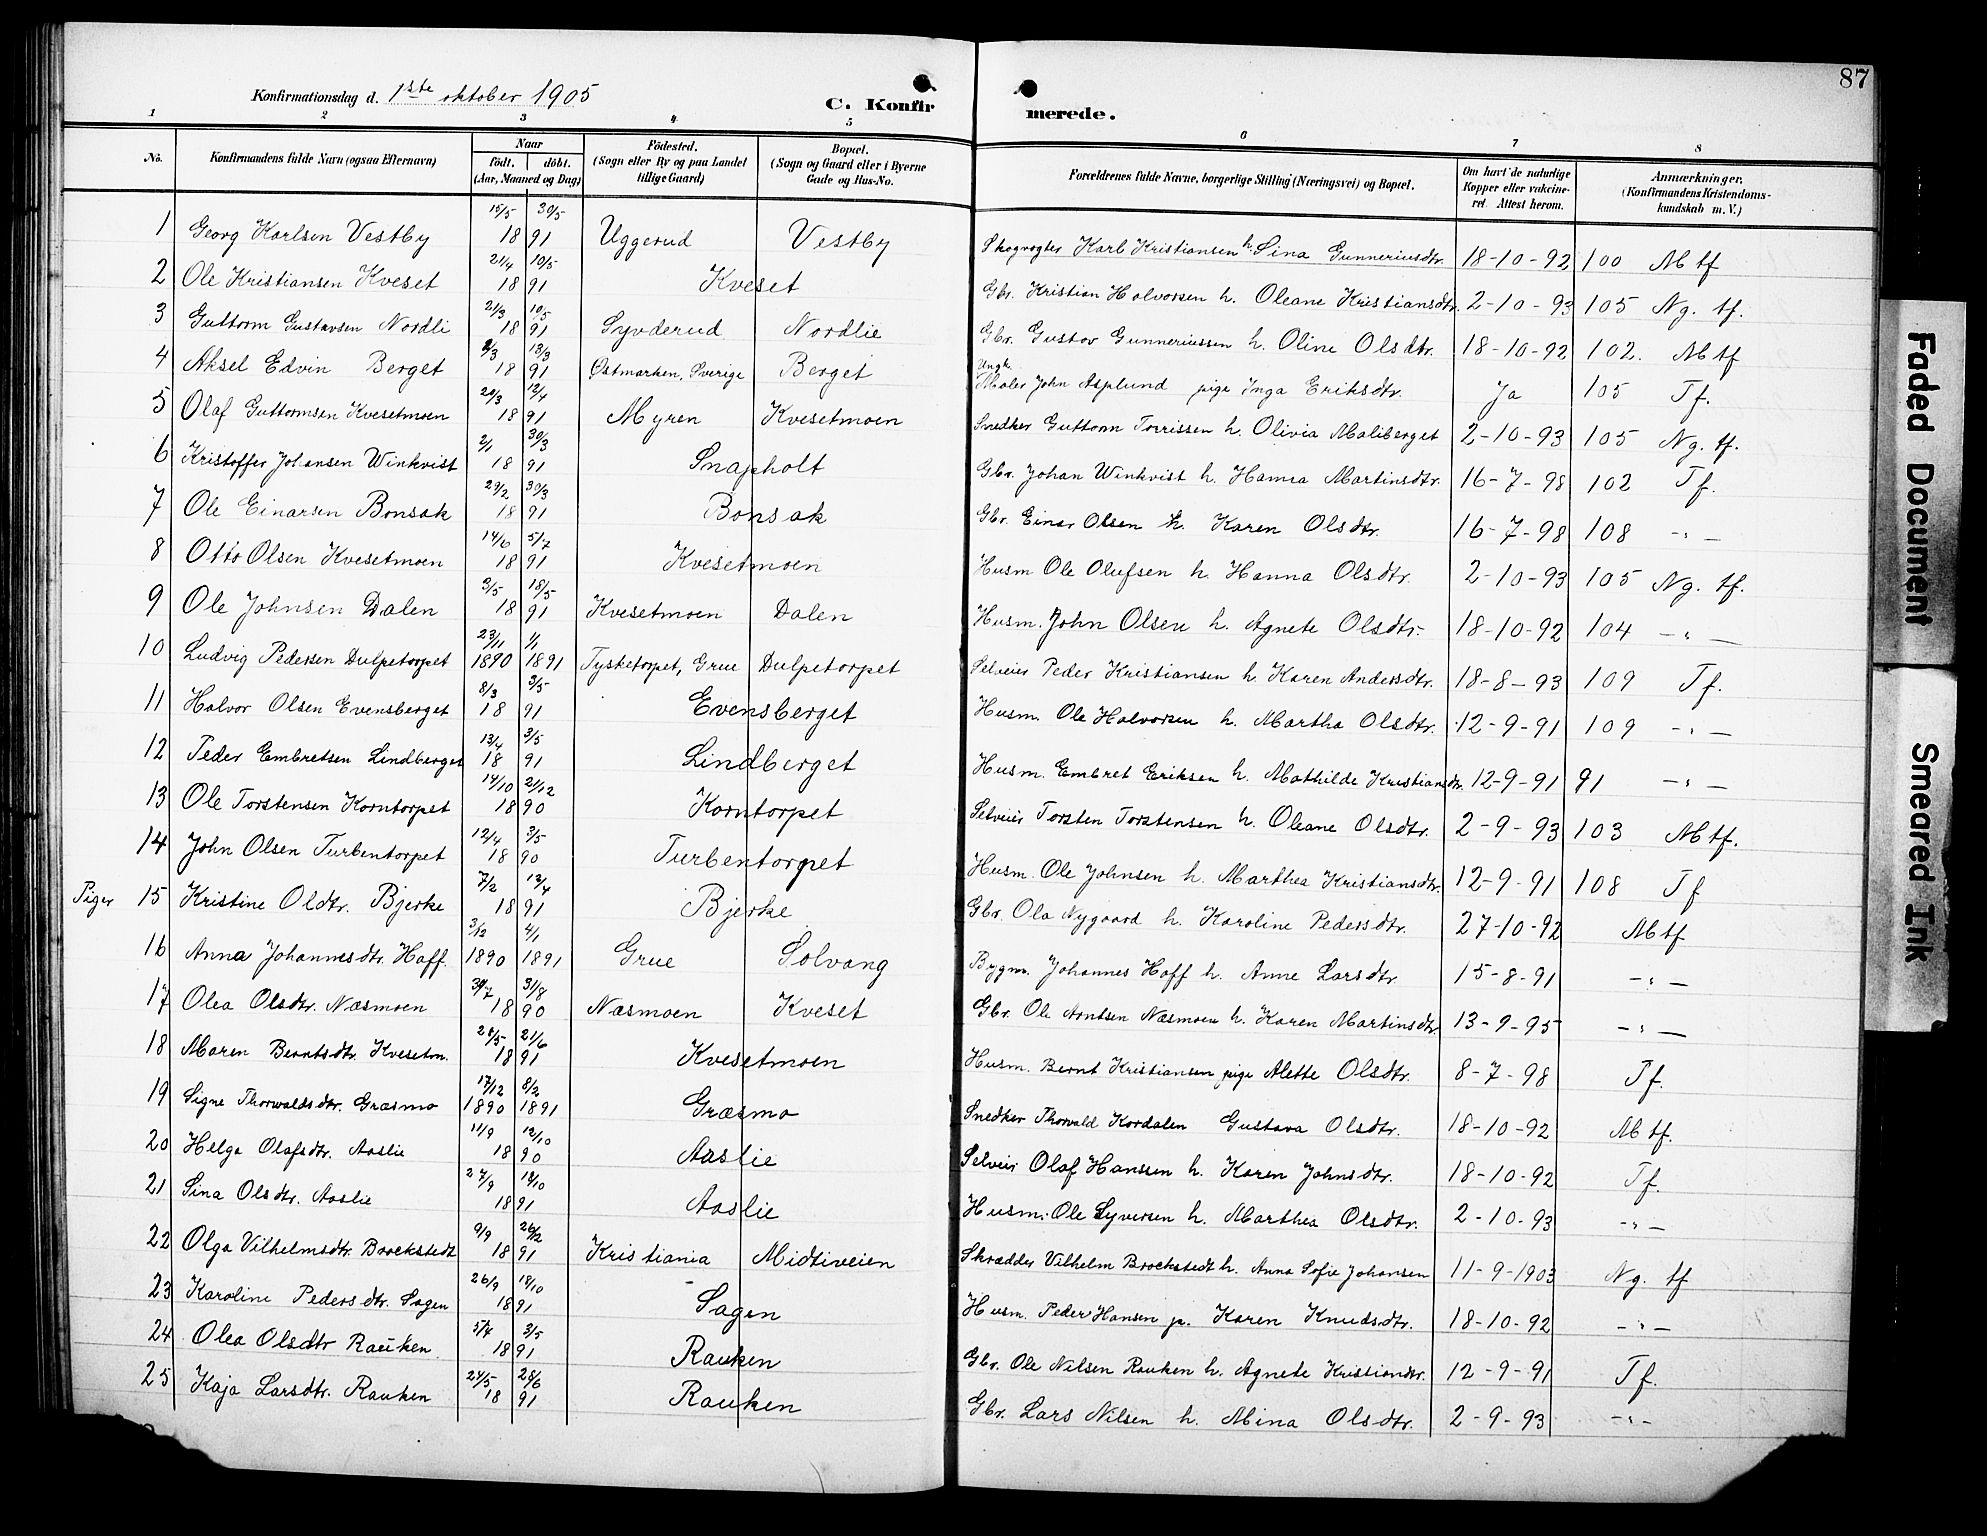 87
Konfirmationsdag d. 1ste oktober 1905
C. Konfirmerede.
1 2 3 4 5 6 7 8
No. Konfirmandens fulde Navn (ogsaa Efternavn) Naar födt. döbt. (Aar, Maaned og Dag) Födested. (Sogn eller By og paa Landet tillige Gaard) Bopæl. (Sogn og Gaard eller i Byerne Gade og Hus-No. Forældrenes fulde Navne, borgerlige Stilling (Næringsvei) og Bopæl. Om havt de naturlige Kopper eller vakcineret. Attest herom. Anmærkninger. (Konfirmandens Kristendomskundskab m. V.)
1 Georg Karlsen Vestby 15/5 30/5 1891 Uggerud Vestby Skogvogter Karl Kristiansen h. Sina Gunneriusdtr. 18-10-92 100 M tf
2 Ole Kristiansen Kveset 21/4 10/5 1891 Kveset Gbr. Kristian Halvorsen h. Oleane Kristiansdtr. 2-10-93 105 Ng. tf.
3 Guttorm Gustavsen Nordli 21/3 10/5 1891 Syvderud Nordlie Gbr. Gustav Gunneriussen h. Oline Olsdtr. 18-10-92 102. M tf
4 Aksel Edvin Berget 2/3 13/3 1891 Østmarken, Sverige Berget Ungk. Maler John Asplund pige Inga Eriksdtr. Ja 105 Tf.
5 Olaf Guttormsen Kvesetmoen 20/3 12/4 1891 Myren Kvesetmoen Snedker Guttorm Torrissen h. Olivia Maliberget 2-10-93 105 Ng. tf.
6 Kristoffer Johansen Winkvist 2/1 30/3 1891 Snapholt Gbr. Johan Winkvist h. Hanna Martinsdtr. 16-7-98 102 Tf.
7 Ole Einarsen Bonsak 29/2 30/3 1891 Bonsak Gbr. Einar Olsen h. Karen Olsdtr. 16-7-98 108 -"-
8 Otto Olsen Kvesetmoen 14/6 5/7 1891 Kvesetmoen Husm Ole Olufsen h. Hanna Olsdtr. 2-10-93 105 Ng. tf.
9 Ole Johnsen Dalen 3/5 18/5 1891 Kvesetmoen Dalen Husm. John Olsen h. Agnete Olsdtr. 18-10-92 104 -"-
10 Ludvig Pedersen Dulpetorpet 23/11 1890 1/1 1891 Tysketorpet, Grue Dulpetorpet Selveier Peder Kristiansen h. Karen Andersdtr. 18-8-93 109 Tf.
11 Halvor Olsen Evensberget 8/3 3/5 1891 Evensberget Husm. Ole Halvorsen h. Martha Olsdtr. 12-9-91 109 -"-
12 Peder Embretsen Lindberget 13/4 3/5 1891 Lindberget Husm. Embret Eriksen h. Mathilde Kristiansdtr. 12-9-91 91 -"-
13 Ole Torstensen Korntorpet 14/10 21/12 1890 Korntorpet Selveier Torsten Torstensen h. Oleane Olsdtr. 2-9-93 103 M tf.
14 John Olsen Turbentorpet 12/4 3/5 1890 Turbentorpet Husm. Ole Johnsen h. Marthea Kristiansdtr. 12-9-91 108 Tf
Piger 15 Kristine Oldtr. Bjerke 7/2 12/4 1891 Bjerke Gbr. Ola Nygaard h. Karoline Pedersdtr. 27-10-92 M tf
16 Anna Johannesdtr. Hoff. 3/12 1890 4/1 1891 Grue Solvang Bygm. Johannes Hoff h. Anne Larsdtr. 15-8-91 -"-
17 Olea Olsdtr. Næsmoen 30/7 31/8 1890 Næsmoen Kveset Gbr. Ole Arntsen Næsmoen h. Karen Martinsdtr. 13-9-95 -"-
18 Maren Berntsdtr. Kvesetm. 28/5 21/6 1891 Kvesetmoen Husm. Bernt Kristiansen pige Alette Olsdtr. 8-7-98 Tf.
19 Signe Thorwaldsdtr. Græsmo 17/12 1890 8/2 1891 Græsmo Snedker Thorvald Kordalen Gustava Olsdtr. 18-10-92 M tf.
20 Helga Olafsdtr. Aaslie 11/9 12/10 1890 Aaslie Selveier Olaf Hanssen h. Karen Johnsdtr. 18-10-92 Tf.
21 Sina Olsdtr. Aaslie 27/9 18/10 1891 Aaslie Husm. Ole Syversen h. Marthea Olsdtr. 2-10-93 -"-
22 Olga Vilhelmsdtr. Brockstedt 9/9 26/12 1891 Kristiania Midtiveien Skrædder Vilhelm Brockstedt h. Anna Sofie Johansen 11-9-1903 Ng. tf
23 Karoline Pedersdtr. Sagen 26/9 18/10 1891 Sagen Husm. Peder Hansen p. Karen Knudsdtr. 18-10-92 -"-
24 Olea Olsdtr Rauken 3/5 1891 Rauken Gbr. Ole Nilsen Rauken h. Agnete Kristiandtr. 12-9-91 Tf.
25 Kaja Larsdtr. Rauken 24/5 28/6 1891 Rauken Gbr. Lars Nilsen h. Mina Olsdtr. 2-9-93 -"-
Faded Document
Smeared Ink